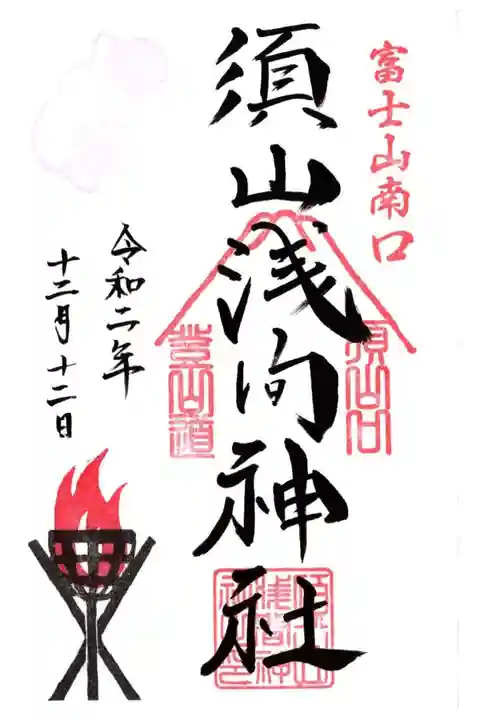 富士山南口
須山浅間神社
須山口
登山道
令和二年
十二月十二日